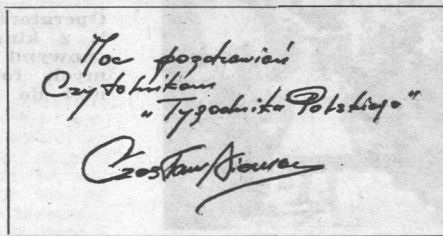 Moc pozdrowień
Czytelnikom
„Tygodnika Polskiego”
Czesław Niemen